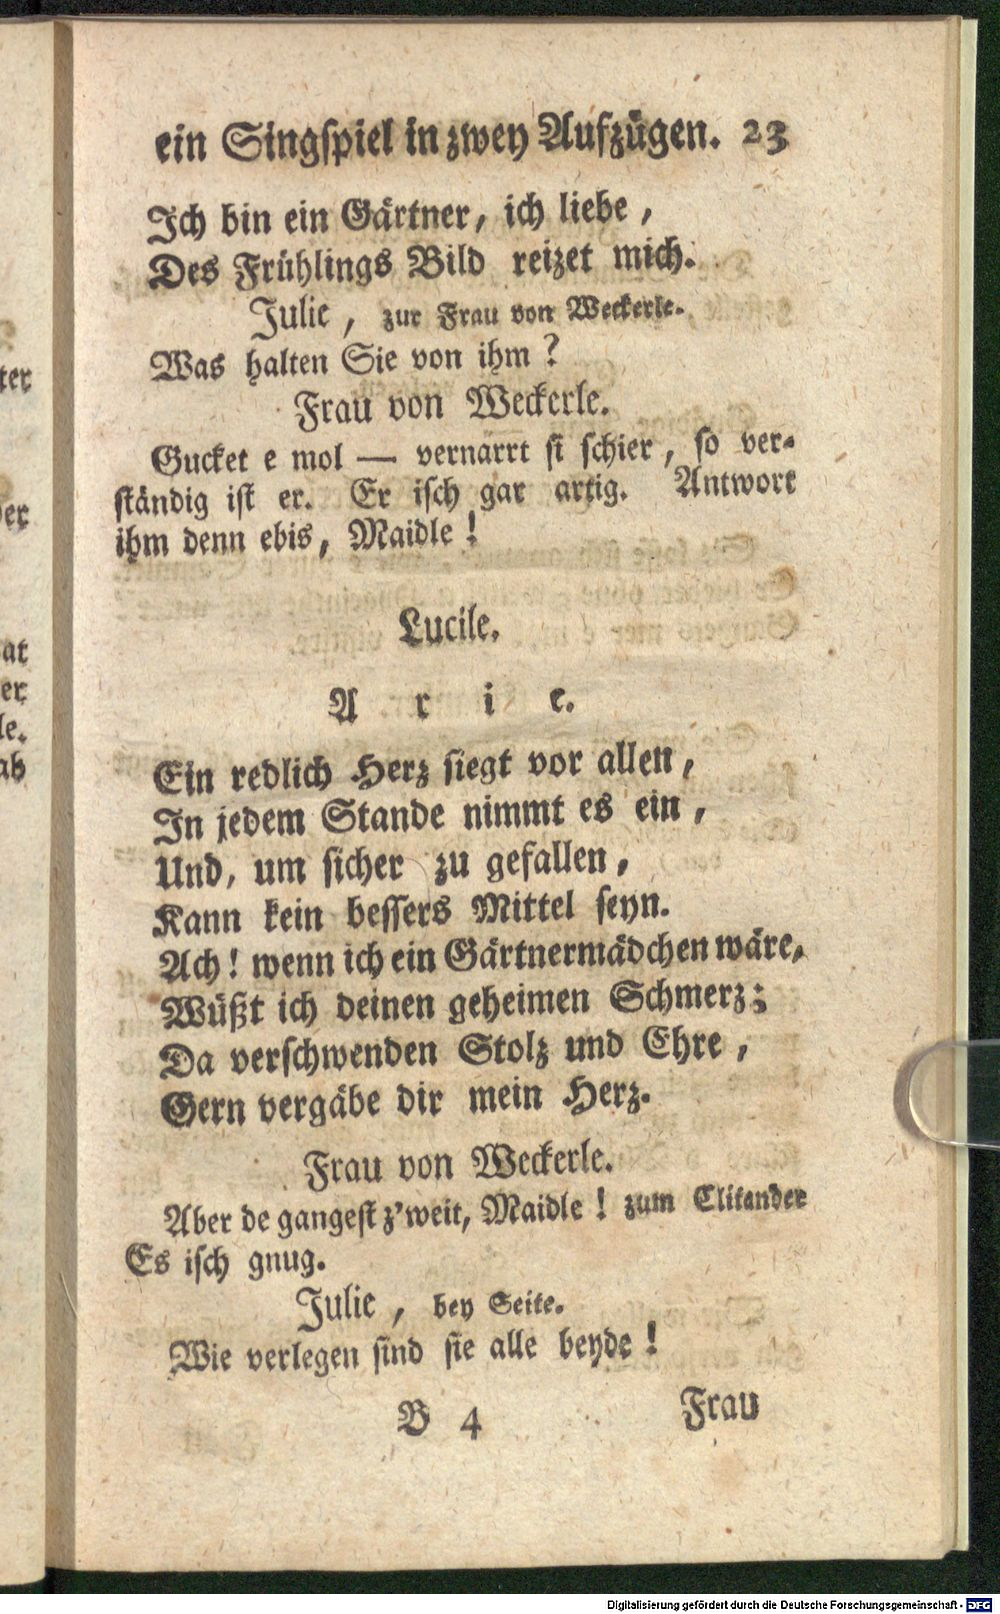 ein Singspiel in zwey Aufzügen. 23
Ich bin ein Gärtner, ich liebe,
Des Frühlings Bild reizet mich.
Julie, zur Frau von Weckerle.
Was halten Sie von ihm?
Frau von Weckerle.
Gucket e mol — vernarrt si schier, so ver-
ständig ist er. Er isch gar artig. Antwort
ihm denn ebis, Maidle!
Lucile.
Arie.
Ein redlich Herz siegt vor allen,
In jedem Stande nimmt es ein,
Und, um sicher zu gefallen,
Kann kein bessers Mittel seyn.
Ach! wenn ich ein Gärtnermädchen wäre,
Wüßt ich deinen geheimen Schmerz;
Da verschwenden Stolz und Ehre,
Gern vergäbe dir mein Herz.
Frau von Weckerle.
Aber de gangest z'weit, Maidle! zum Clitander
Es isch gnug.
Julie, bey Seite.
Wie verlegen sind sie alle beyde!
B 4 Frau
Digitalisierung gefördert durch die Deutsche Forschungsgemeinschaft - DFG